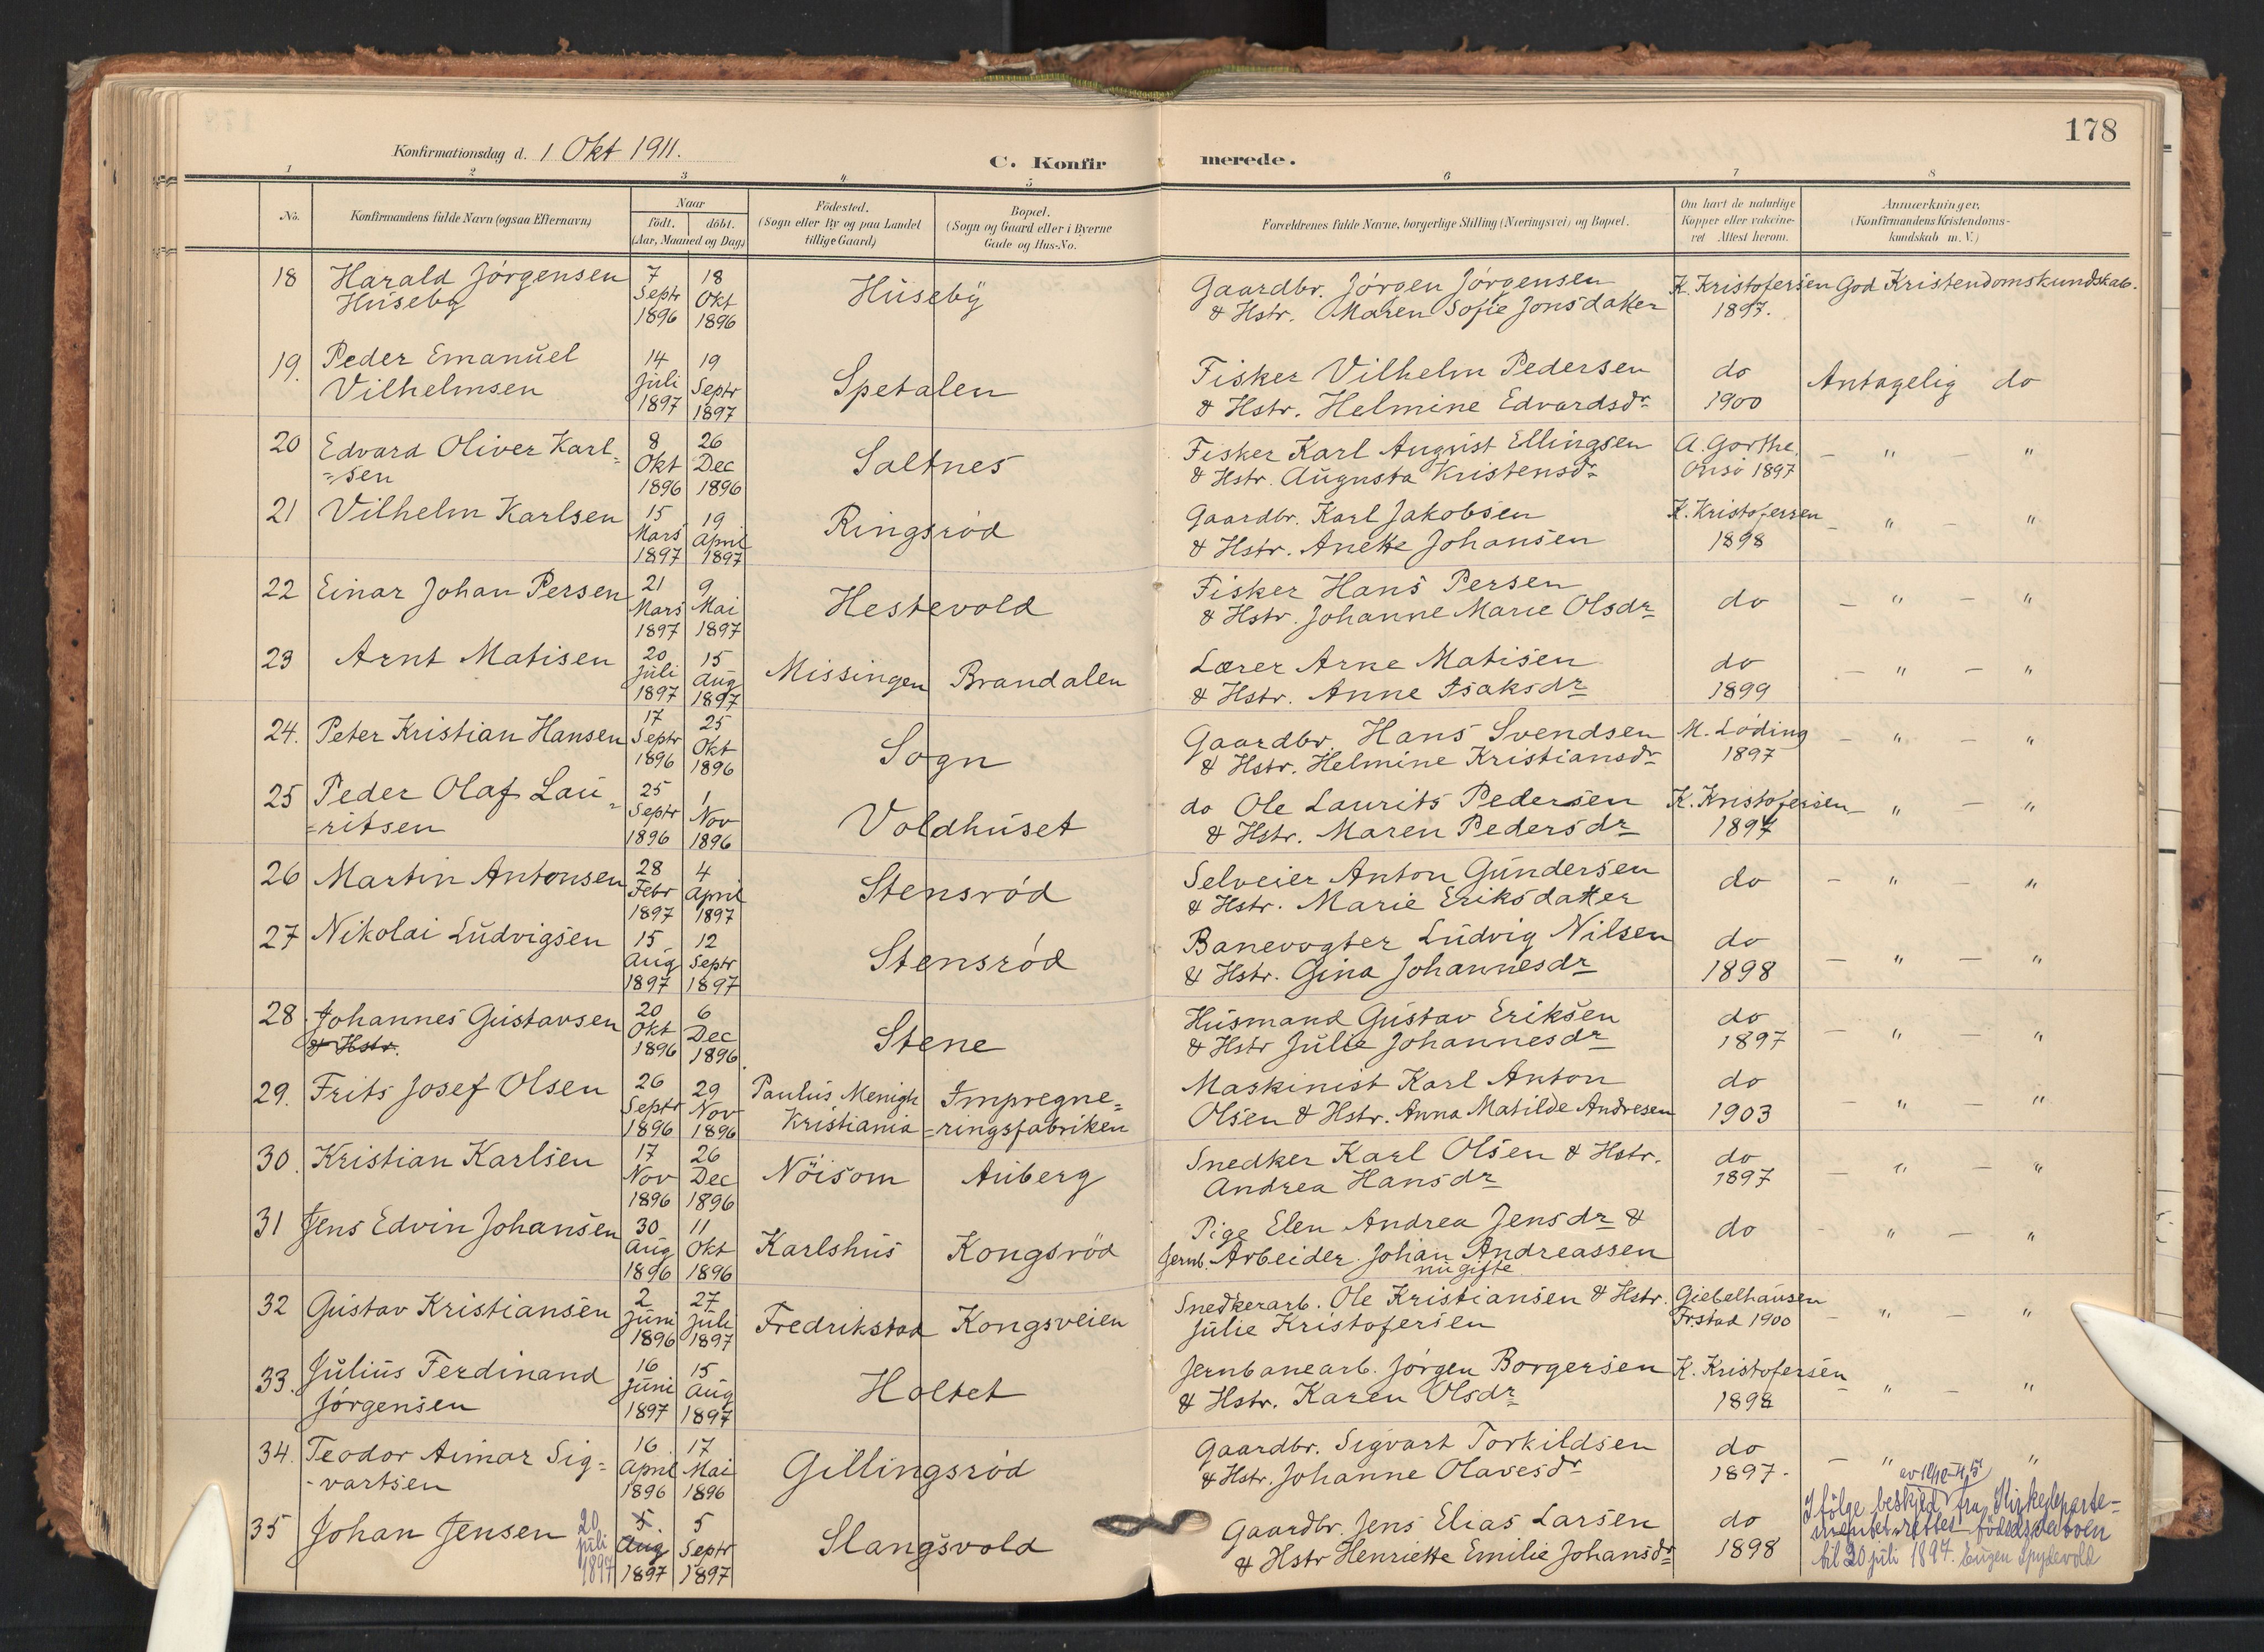 178
Konfirmationsdag d. 1 Okt 1911.
C. Konfirmerede.
1 2 3 4 5 6 7 8
No.
Konfirmandens fulde Navn (ogsaa Efternavn)
Naar
født. døbt.
(Aar, Maaned og Dag)
Fødested.
(Sogn eller By og paa Landet
tillige Gaard)
Bopæl.
(Sogn og Gaard eller i Byerne
Gade og Hus-No.
Forældrenes fulde Navne, borgerlige Stilling (Næringsvei) og Bopæl.
Om havt de naturlige
Kopper eller vakcine-
ret Attest herom.
Anmærkninger.
(Konfirmandens Kristendoms-
kundskab m. V.)
18 Harald Jörgensen Huseby 7 Septr 1896 18 Okt 1896 Huseby
Gaardbr. Jörgen Jörgensen
& Hstr. Maren Sofie Jonsdatter
K. Kristofersen 1897. God Kristendomskundskab.
19. Peder Emanuel Vilhelmsen 14 Juli 1897 19 Septr 1897 Spetalen
Fisker Vilhelm Pedersen
& Hstr. Helmine Edvardsdr
do 1900 Antagelig do
20 Edvard Oliver Karl= =sen 8 Okt 1896 26 Dec 1896 Saltnes
Fisker Karl August Ellingsen
& Hstr. Augusta Kristensdr
A. Gorthe, Onsö 1897 — " — "
21 Vilhelm Karlsen 15 Mars 1897 19 April 1897 Ringsröd
Gaardbr. Karl Jakobsen
& Hstr. Anette Johansen
K. Kristofersen 1898 — " — "
22 Einar Johan Persen 21 Mars 1897 9 Mai 1897 Hestevold
Fisker Hans Persen
& Hstr. Johanne Marie Olsdr
do — " — "
23 Arnt Matisen 20 Juli 1897 15 Aug 1897 Missingen Brandalen
Lærer Arne Matisen
& Hstr. Anne Isaksdr
do 1899 — " — "
24. Peter Kristian Hansen 17 Septr 1896 25 Okt 1896 Sogn
Gaardbr. Hans Svendsen
& Hstr. Helmine Kristiansdr
M. Löding 1897 — " — "
25 Peder Olaf Lau= =ritsen 25 Septr 1896 1 Nov 1896 Voldhuset
do Ole Laurits Pedersen
& Hstr. Maren Pedersdr
K. Kristofersen 1897 — " — "
26 Martin Antonsen 28 Febr 1897 4 April 1897 Stensröd
Selveier Anton Gundersen
& Hstr. Marie Eriksdatter
do — " — "
27 Nikolai Ludvigsen 15 Aug 1897 12 Septr 1897 Stensröd
Banevogter Ludvig Nilsen
& Hstr. Gina Johannesdr
do 1898 — " — "
28. Johannes Gustavsen & Hstr. 20 Okt 1896 6 Dec 1896. Stene
Husmand Gustav Eriksen
& Hstr Julie Johannesdr
do 1897 — " — "
29. Frits Josef Olsen 26 Septr 1896 29 Nov 1896 Paulus Menigh Kristiania Impregne= =ringsfabriken
Maskinist Karl Anton
Olsen & Hstr. Anna Matilde Andresen
do 1903 — " — "
30. Kristian Karlsen 17 Nov 1896 26 Dec 1896 Nöisom Auberg
Snedker Karl Olsen & Hstr.
Andrea Hansdr
do 1897 — " — "
31 Jens Edvin Johansen 30 Aug 1896 11 Okt 1896 Karlshus Kongsröd
Pige Elen Andrea Jensdr &
Jernb. Arbeider Johan Andreassen
nu gifte
do - " — "
32 Gustav Kristiansen 2 Juni 1896 27 Juli 1897 Fredrikstad Kongsveien
Snedkerarb. Ole Kristiansen & Hstr.
Julie Kristofersen
Giebelhausen Fr.stad 1900 — " — "
33. Julius Ferdinand Jörgensen 16 Juni 1897 15 Aug 1897 Holtet
Jernbanearb. Jörgen Borgersen
& Hstr. Karen Olsdr
K. Kristofersen 1898 — " — "
34. Teodor Aimar Sig= -vartsen 16 April 1896 17 Mai 1896 Gillingsröd
Gaardbr. Sigvart Torkildsen
& Hstr. Johanne Olavesdr
do 1897. — " "
35 Johan Jensen 20 juli 1897 5 Aug 1897 5 Septr 1897 Slangsvold
Gaardbr. Jens Elias Larsen
& Hstr Henriette Emilie Johansdr
do 1898
I fölge beskjed fra Kirkedeparte-
mentet rettes
til 20 juli 1897. Eugen Spydevold